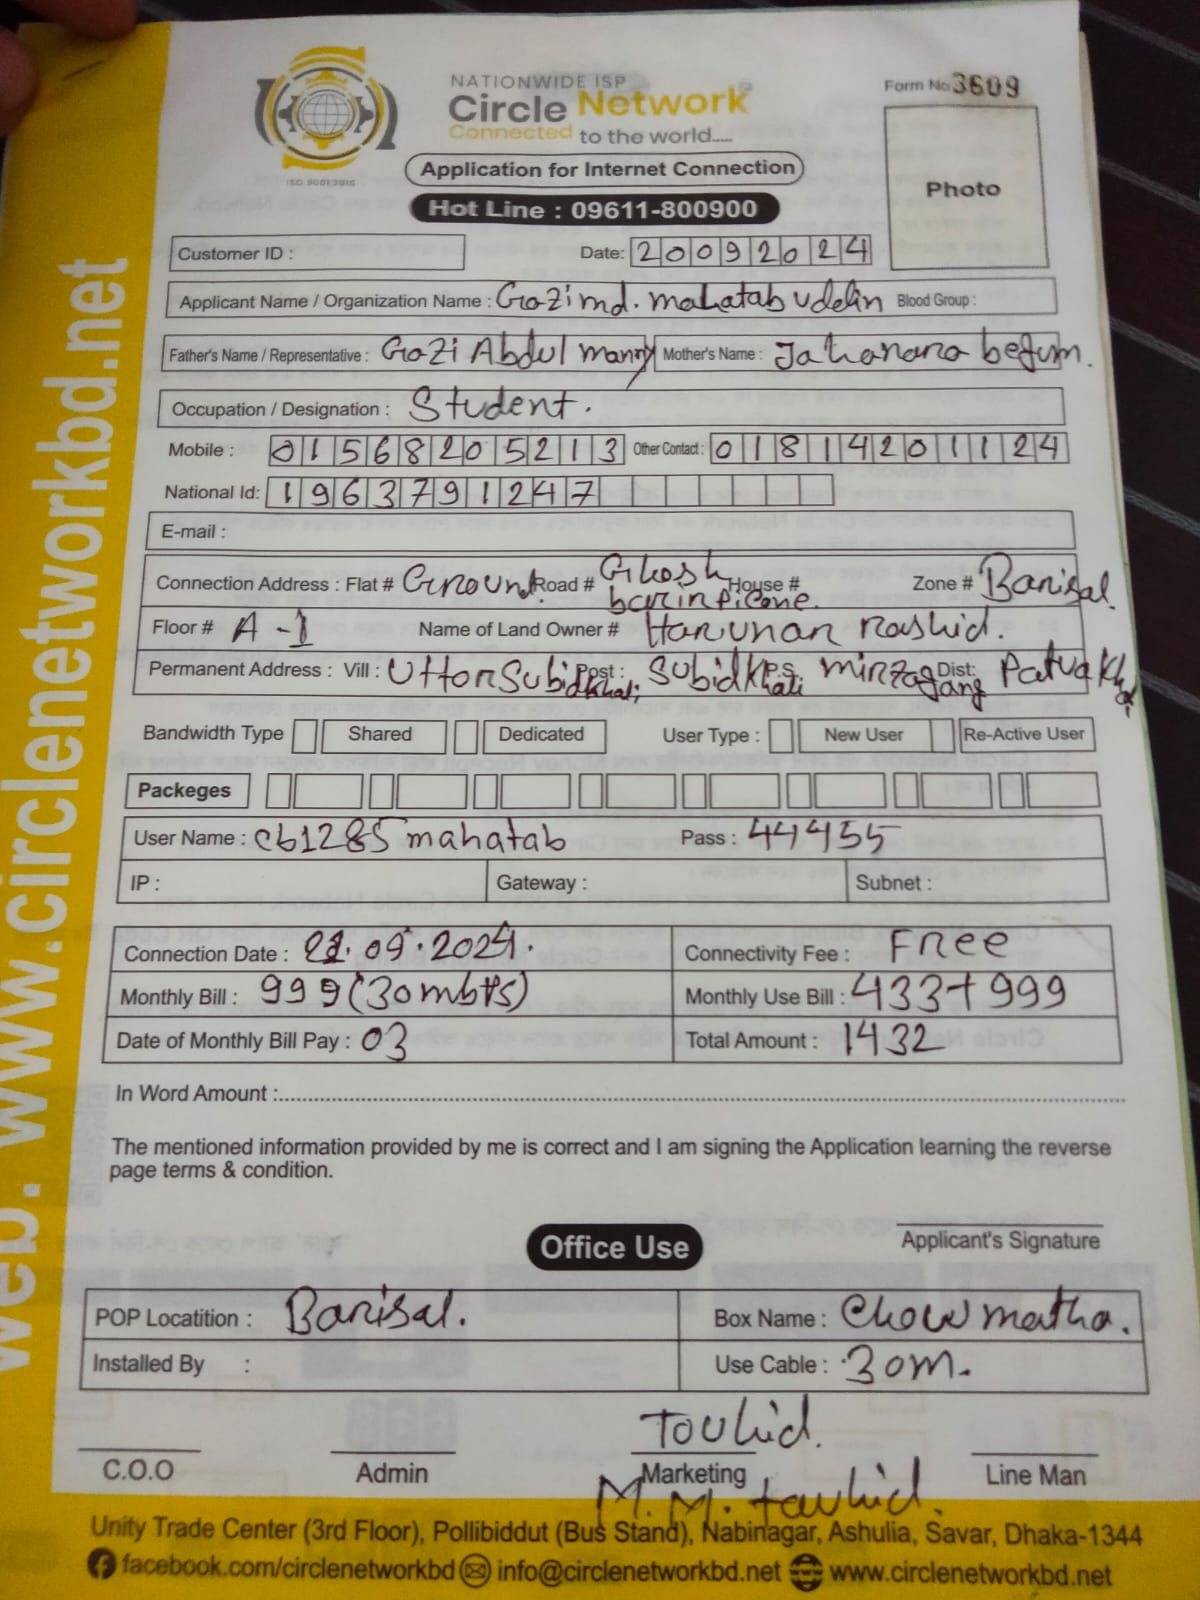 NATIONWIDE ISP
Circle Network
Connected to the world.....
ISO 9001:2015
Form No 3609
Photo
Application for Internet Connection
Hot Line : 09611-800900
Customer ID :
Date: 20092024
Applicant Name / Organization Name : Gazi md. mahatab uddin Blood Group :
Father's Name / Representative : Gazi Abdul Mother's Name : Jahanara begum.
Occupation / Designation : Student.
Mobile : 01568205213 Other Contact : 01814201124
National Id: 1963791247
E-mail :
Connection Address : Flat # Ground Road # Ghosh House # Zone # Barisal.
Floor # A-1 Name of Land Owner # Harunar Rashid.
Permanent Address : Vill : Uttor Subidkhali Post : Subidkhali P.S. mirzagang Dist: Patuakhali
Bandwidth Type Shared Dedicated User Type : New User Re-Active User
Packeges
User Name : cb1285mahatab Pass : 44455
IP : Gateway : Subnet :
Connection Date : 21.09.2024. Connectivity Fee : Free
Monthly Bill : 999(30mbps) Monthly Use Bill : 433+999
Date of Monthly Bill Pay : 03 Total Amount : 1432
In Word Amount :
The mentioned information provided by me is correct and I am signing the Application learning the reverse
page terms & condition.
Applicant's Signature
Office Use
POP Locatition : Barisal. Box Name : Chowmatha.
Installed By : Use Cable : 30m.
Touhid.
C.O.O Admin Marketing Line Man
M.M. tauhid.
Unity Trade Center (3rd Floor), Pollibiddut (Bus Stand), Nabinagar, Ashulia, Savar, Dhaka-1344
facebook.com/circlenetworkbd info@circlenetworkbd.net www.circlenetworkbd.net
web: www.circlenetworkbd.net